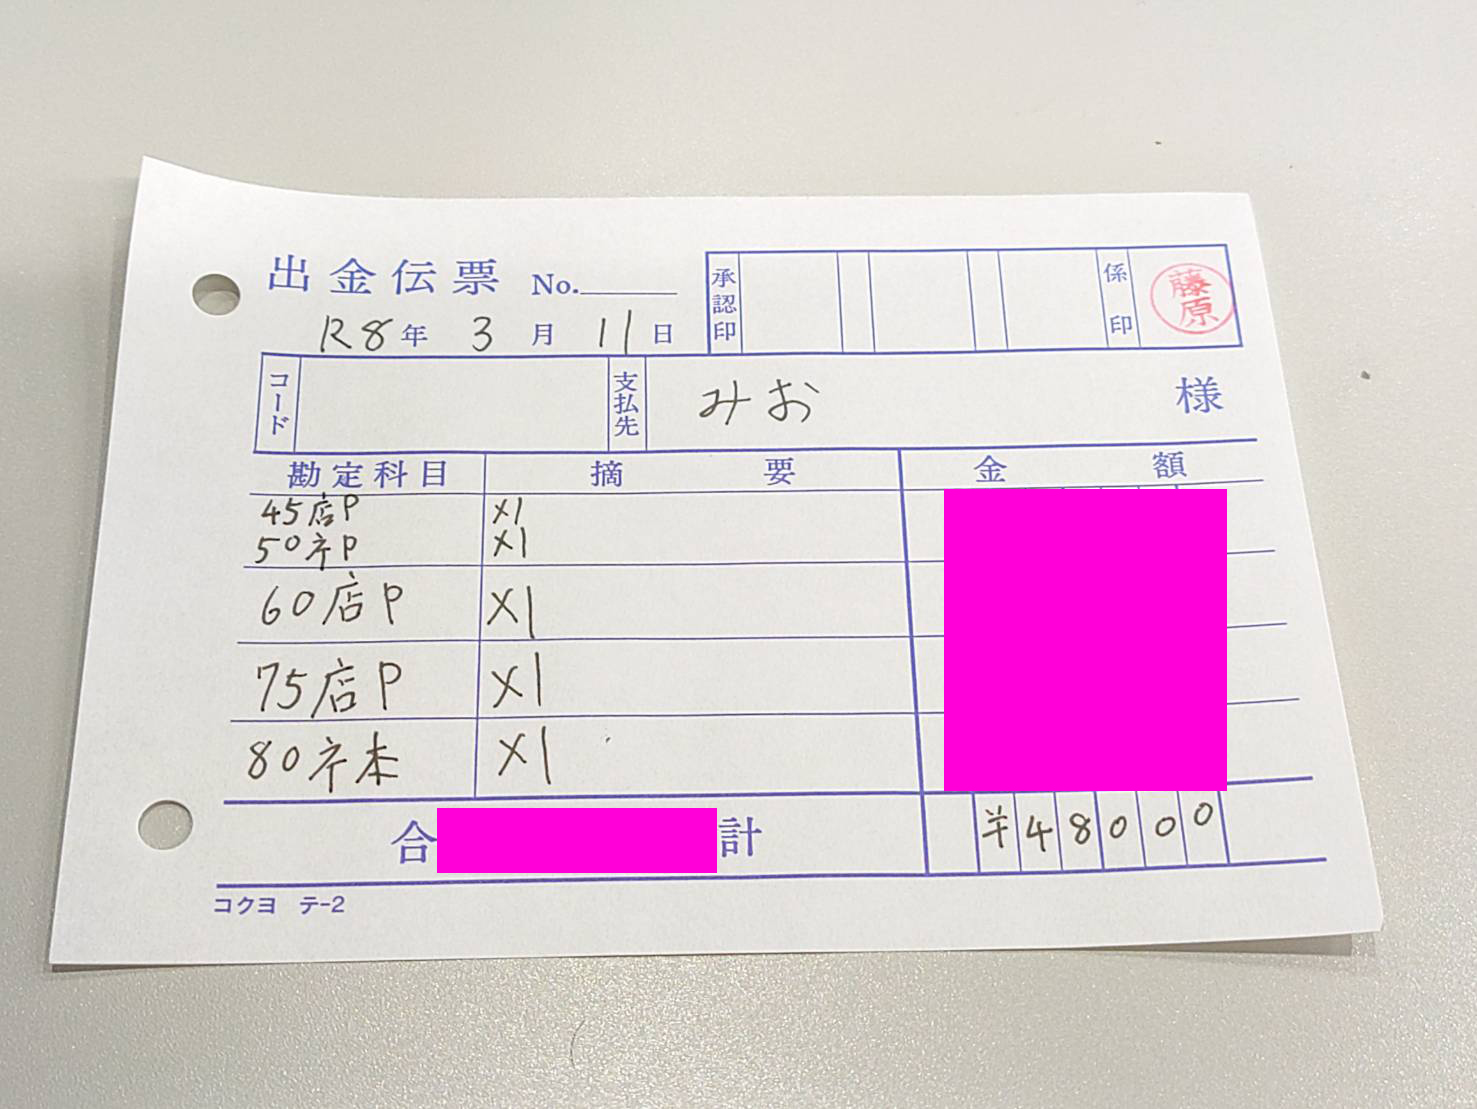 出金伝票 No.
承認印
係印
藤原
R8年 3月 11日
コード
支払先 みお 様
勘定科目 摘要 金額
45店P X1
50ネP X1
60店P X1
75店P X1
80ネ本 X1
合計 ¥48000
コクヨ テ-2